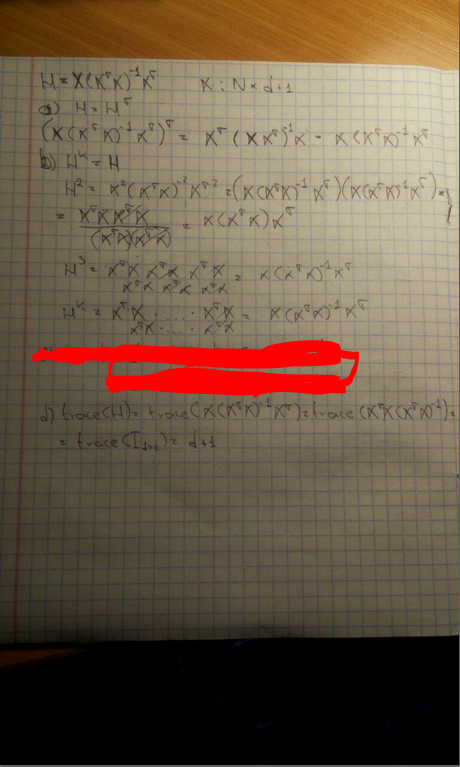 H = X(XᵀX)⁻¹Xᵀ X : N × d+1
a) H = Hᵀ
(X(XᵀX)⁻¹Xᵀ)ᵀ = Xᵀ(XXᵀ)⁻¹X = X(XᵀX)⁻¹Xᵀ
b) Hᴷ = H
H² = X²(XᵀX)⁻²Xᵀ² = (X(XᵀX)⁻¹Xᵀ)(X(XᵀX)⁻¹Xᵀ) =
= XᵀX XᵀX / (XᵀX)(XᵀX) = X(XᵀX)Xᵀ
H³ = XᵀX XᵀX XᵀX / XᵀX XᵀX XᵀX = X(XᵀX)⁻¹Xᵀ
Hᴷ = XᵀX ..... XᵀX / XᵀX ..... XᵀX = X(XᵀX)⁻¹Xᵀ
d) trace(H) = trace(X(XᵀX)⁻¹Xᵀ) = trace(XᵀX(XᵀX)⁻¹) =
= trace(I_d+1) = d+1